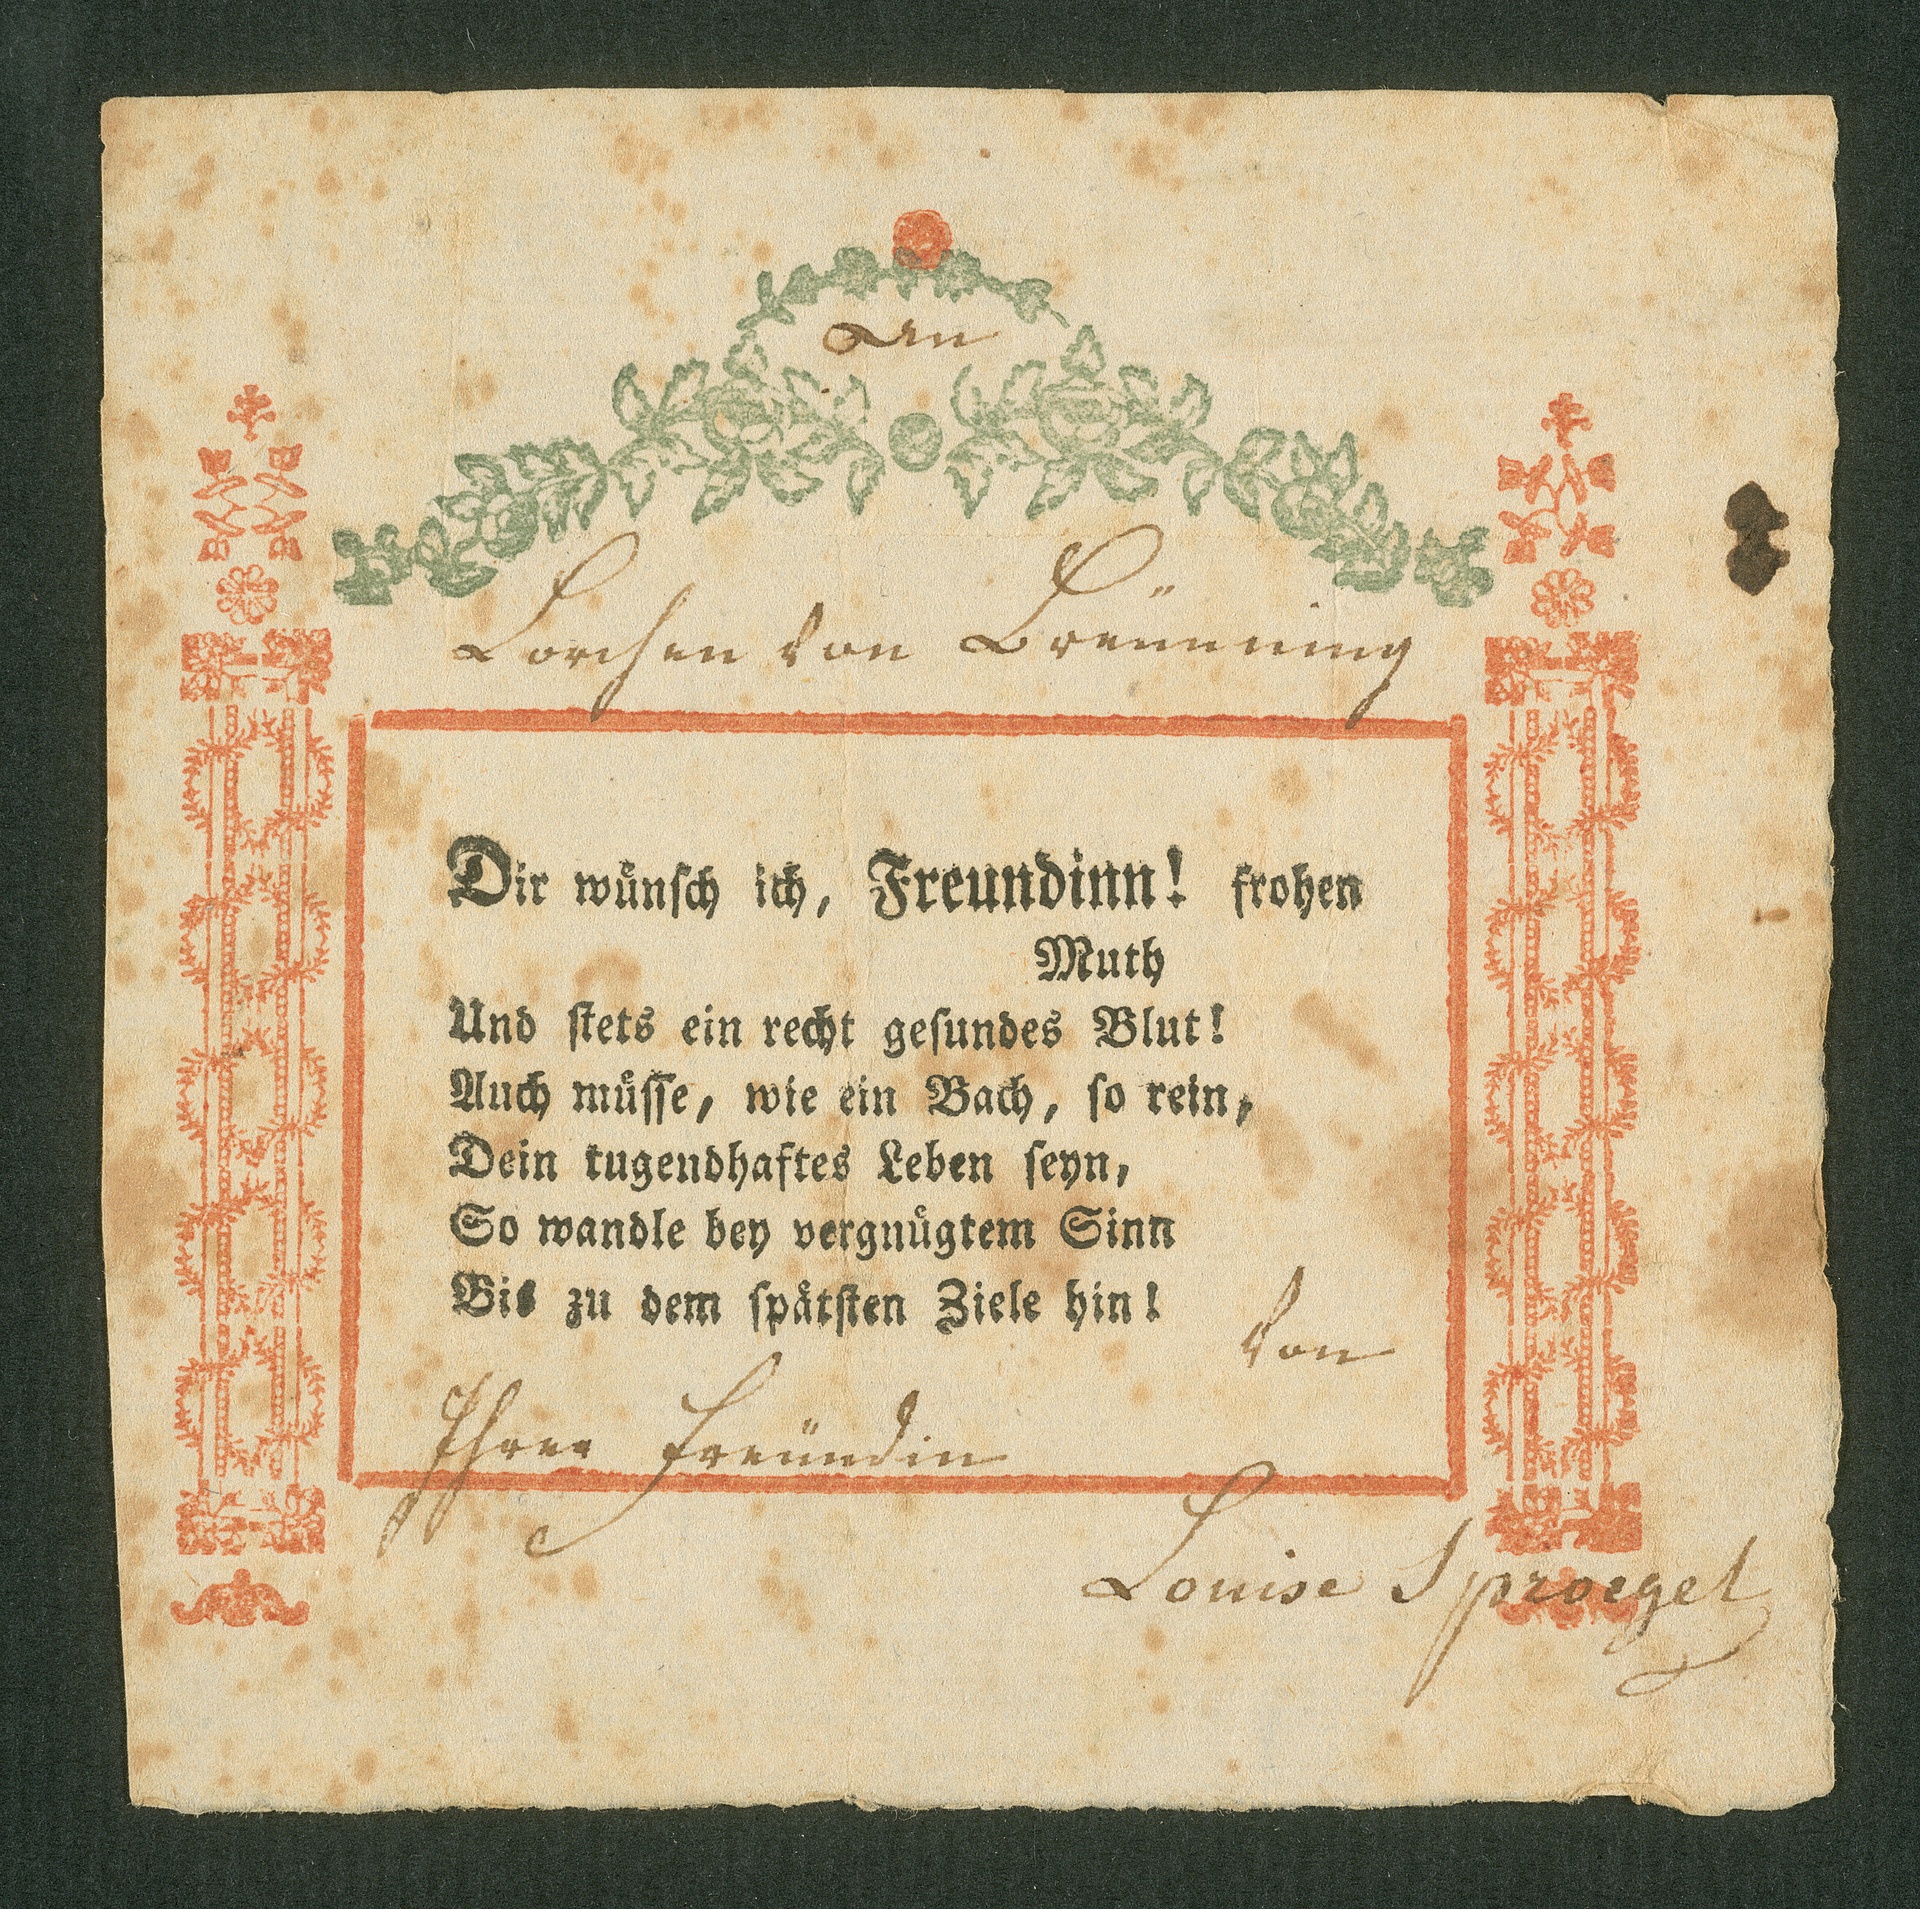 An
Lorchen von Breünning
Dir wünsch ich, Freundinn! frohen
Muth
Und stets ein recht gesundes Blut!
Auch müsse, wie ein Bach, so rein,
Dein tugendhaftes Leben seyn,
So wandle bey vergnügtem Sinn
Bis zu dem spätsten Ziele hin!
von
Ihrer Freündin
Louise Sproegel